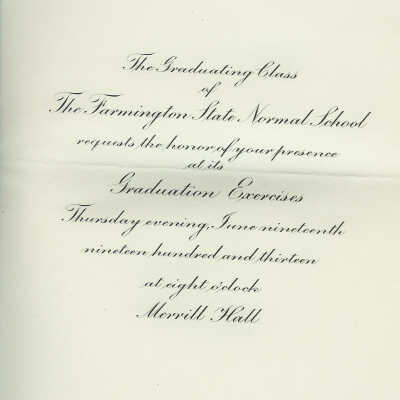 The Graduating Class
of
The Farmington State Normal School
requests the honor of your presence
at its
Graduation Exercises
Thursday evening, June nineteenth
nineteen hundred and thirteen
at eight o'clock
Merrill Hall